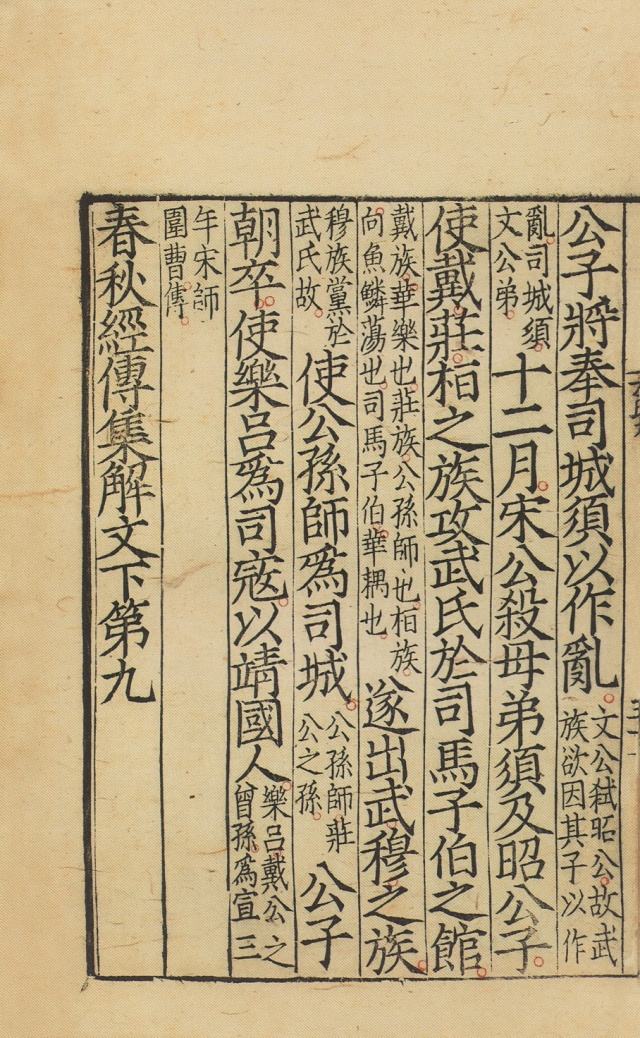 公子將奉司城須以作亂文公弑昭公故武族欲因其子以作
亂司城須文公弟十二月宋公殺母弟須及昭公子
使戴莊桓之族攻武氏於司馬子伯之館
戴族華樂也莊族公孫師也桓族向魚鱗蕩也司馬子伯華耦也遂出武穆之族
穆族黨於武氏故使公孫師爲司城公孫師莊公之孫公子
朝卒使樂呂爲司寇以靖國人樂呂戴公之曾孫爲宣三
午宋師圍曹傳
春秋經傳集解文下第九